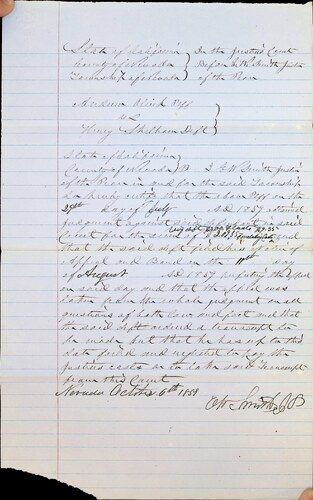 State of California } In the Justice Court
County of Nevada } Before E W Smith Justice
Township of Nevada } of the Peace
Andrew Plff
vs
Henry Dft
State of California
County of Nevada } I E W Smith Justice
of the Peace in and for said Township
do hereby certify that the above Plff on the
day of July A.D. 1857 obtained
judgment against said in said
Court for the sum of
that the said deft filed his notice of
appeal and Bond on the 11th day
of August A.D. 1857 the appeal
on said day and that the appeal was
taken from the whole judgment on all
questions of both law and fact and that
the said deft ordered a transcript to
be made but that he has up to this
date failed and neglected to pay the
Justices costs or to take said Transcript
from this Court
Nevada October 6th 1857
E W Smith J P